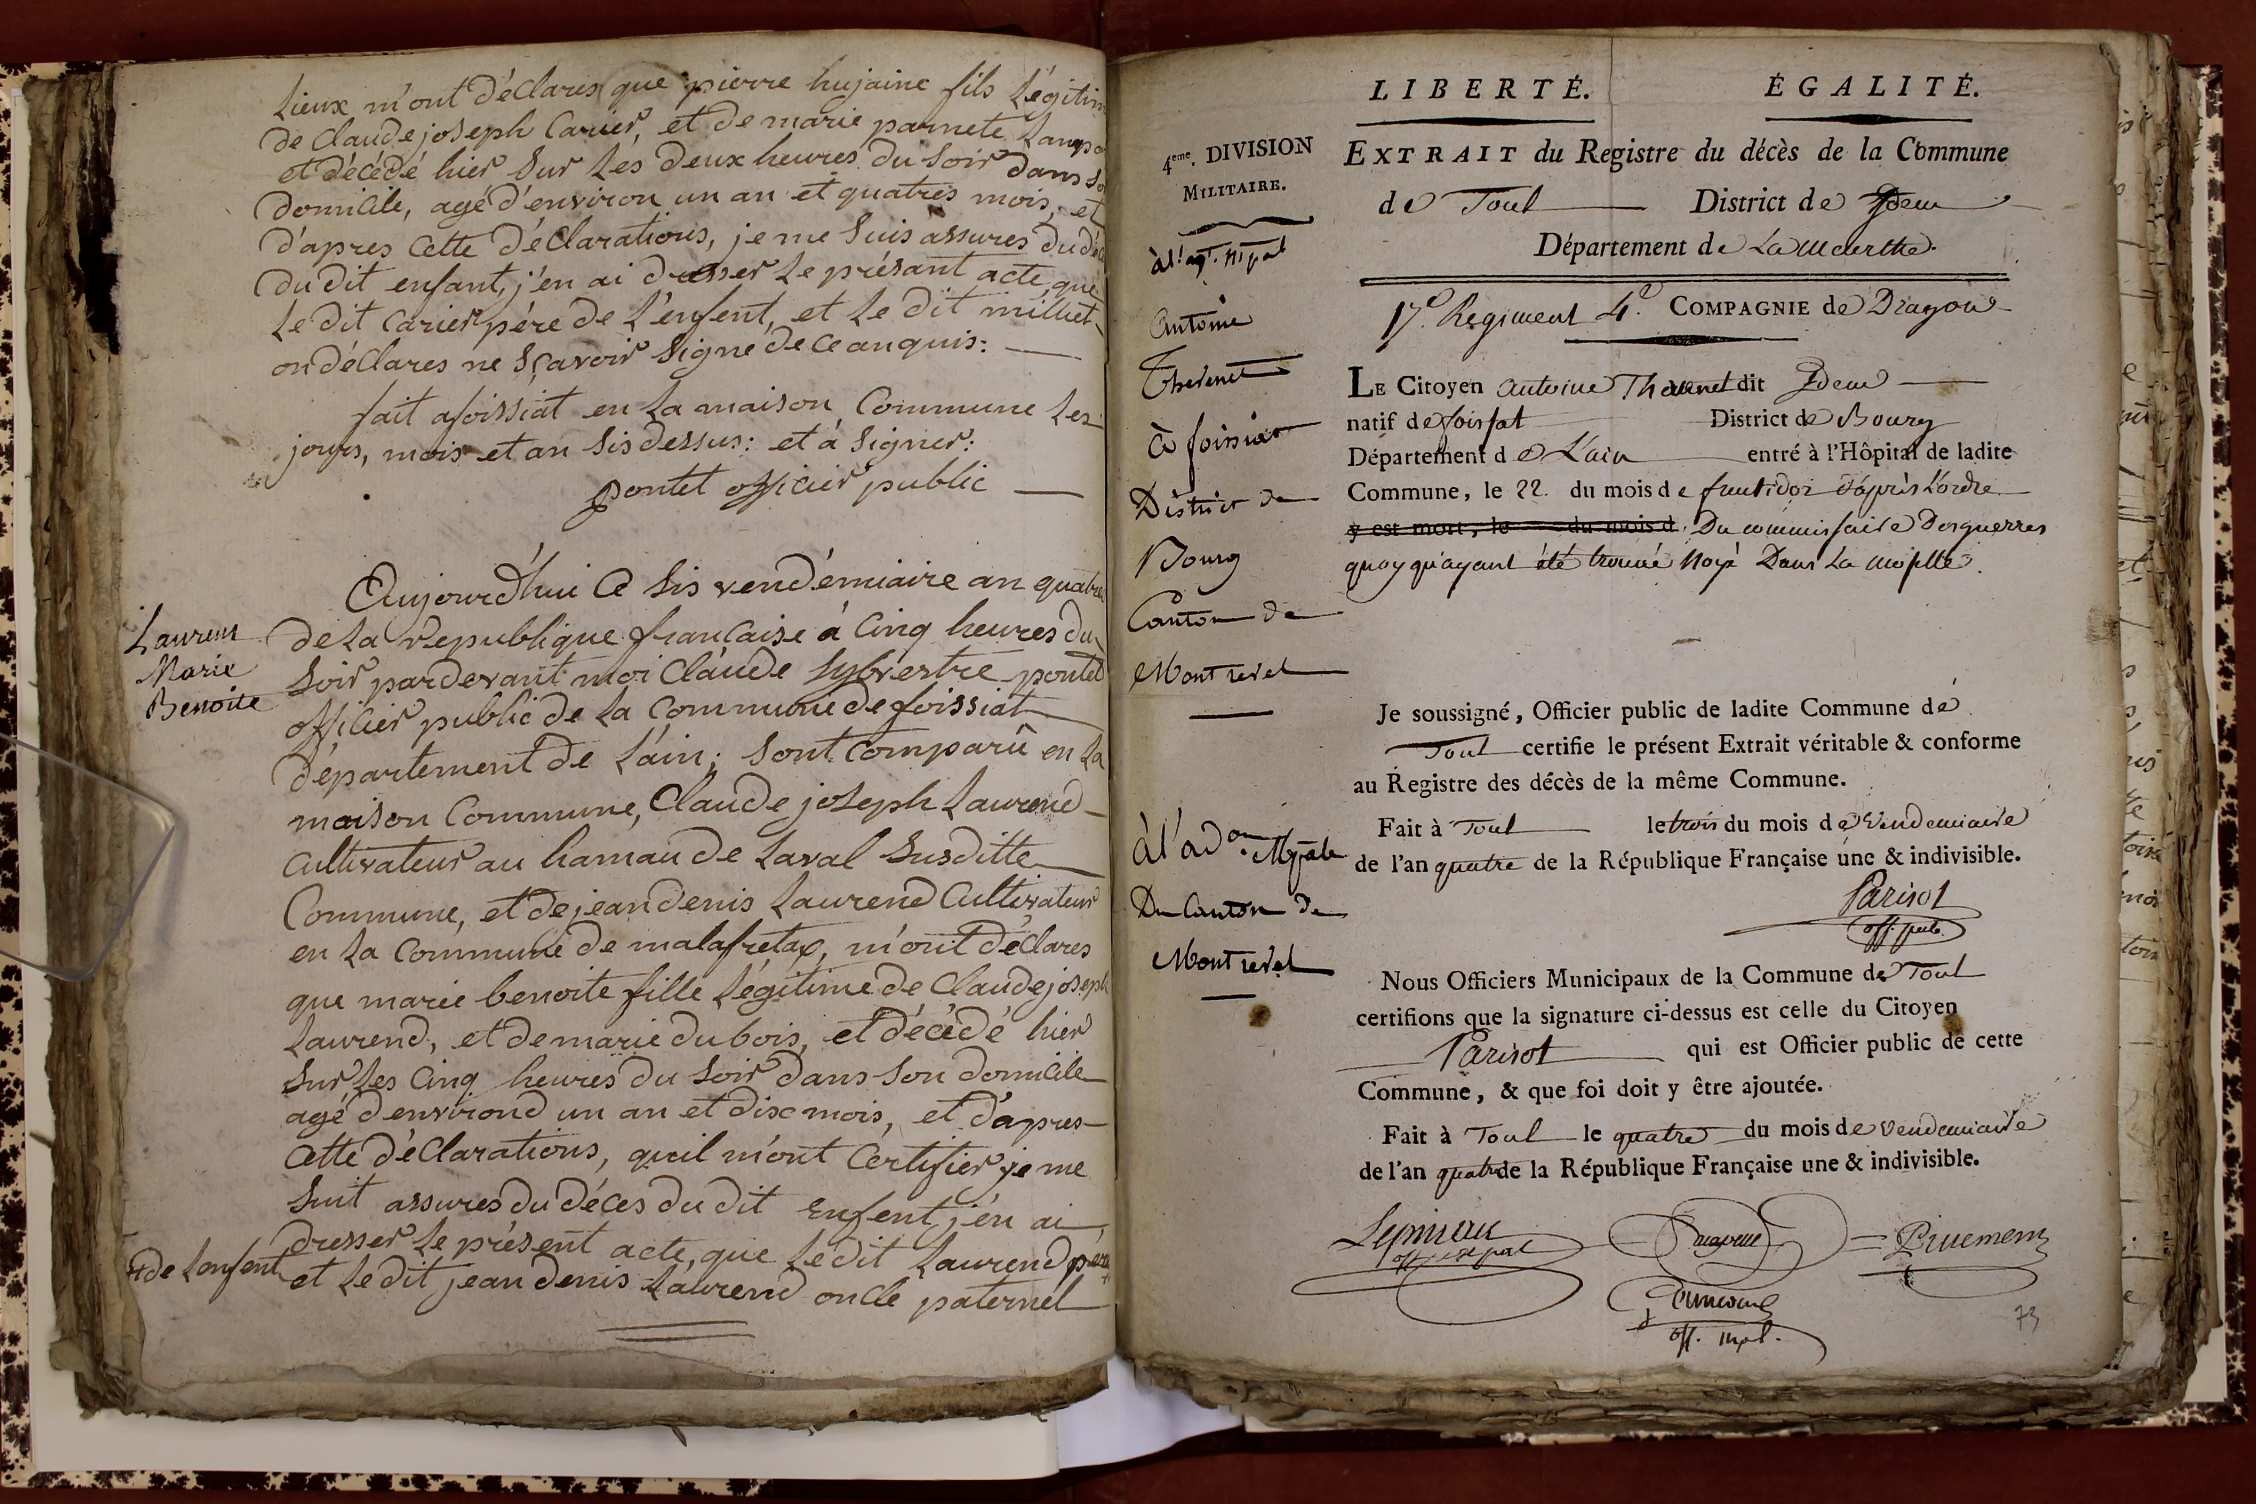 Lieux m'ont déclares que pierre hujaine fils Légitim
de Claude joseph Carier, et de marie parnete Lanpo
et décédé hier Sur Lés deux heures du Soir dans so
domicile, agé d'environ un an et quatres mois, et
d'apres Cette déclarations, je me Suis assures du dé
du dit enfant, j'en ai dresser Le présant acte, que
Le dit Carier pére de L'enfent, et Le dit milliet
on déclares ne Sçavoir Signé de ce anquis:
fait a foissiat en La maison Commune Les
jours, mois et an Sis dessus: et à Signer:
pontet officier public
Aujourd'hui Ce Sis vendémiaire an quatre
de La République française á Cinq heures du
Soir pardevant moi Claude Sylvestre pontet
officier public de La Commune de foissiat
département de L'ain; Sont Comparû en La
maison Commune, Claude joseph Laurend
Cultivateur au hamau de Laval Susditte
Commune, et de jean denis Laurend Cultivateur
en La Commune de malafretaz, m'ont déclares
que marie benoite fille Légitime de Claude joseph
Laurend, et de marie du bois, et décédé hier
Sur Les Cinq heures du Soir dans Son domicile
agé d'environd un an et dix mois, et d'apres
Cette déclarations, quil m'ont Certifier je me
Suit assures du déces du dit Enfent, j'en ai
dresser Le présent acte, que Le dit Laurend pére
et Le dit jean denis Laurend oncle paternel
Laurent
Marie
Benoite
+ de Lenfent
LIBERTÉ. ÉGALITÉ.
4eme. DIVISION
MILITAIRE.
à l'agt. npal
Antoine
Thevenet
à foissiat
District de
Bourg
Canton de
Montrevel
à l'adon. Mpale
Du Canton de
Montrevel
EXTRAIT du Registre du décès de la Commune
de Toul District de Idem
Département de La Meurthe.
17e. Regiment 4e. COMPAGNIE de Dragons
LE Citoyen Antoine Thevenet dit Idem
natif de foissat District de Bourg
Département de L'ain entré à l'Hôpital de ladite
Commune, le 22. du mois de fructidor d'après L'ordre
y est mort, le du mois d Du commissaire Des guerres
quoy qu'ayant été trouvé Noyé Dans La Moselle.
Je soussigné, Officier public de ladite Commune de
Toul certifie le présent Extrait véritable & conforme
au Registre des décès de la même Commune.
Fait à Toul le trois du mois de Vendemiaire
de l'an quatre de la République Française une & indivisible.
Parisot
off. pub.
Nous Officiers Municipaux de la Commune de Toul
certifions que la signature ci-dessus est celle du Citoyen
Parisot qui est Officier public de cette
Commune, & que foi doit y être ajoutée.
Fait à Toul le quatre du mois de Vendemiaire
de l'an quatre de la République Française une & indivisible.
off. mpal.
73